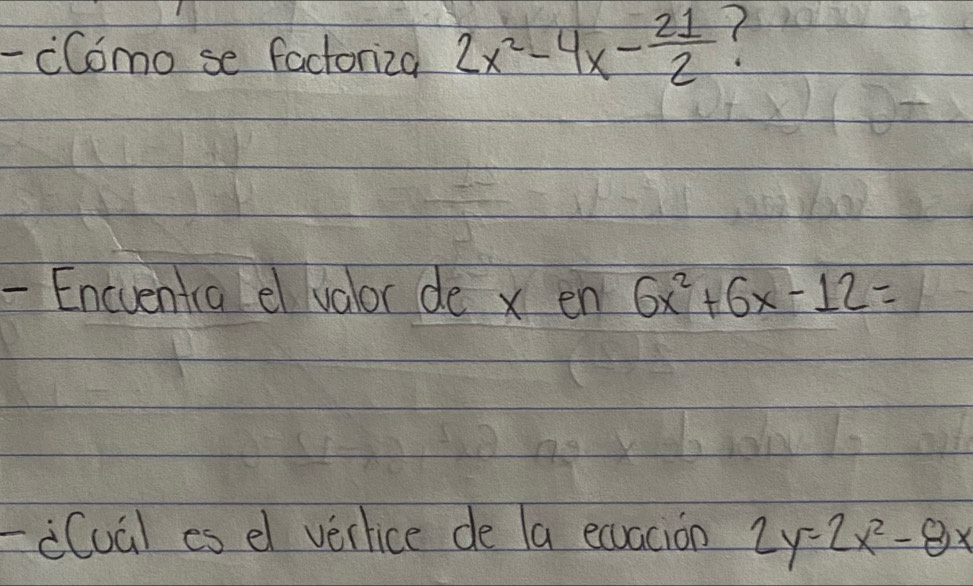 - ¿Cómo se factoriza 2x² - 4x - 21/2?
- Encuentra el valor de x en 6x² + 6x - 12 =
- ¿Cuál es el vértice de la ecuación 2y = 2x² - 8x